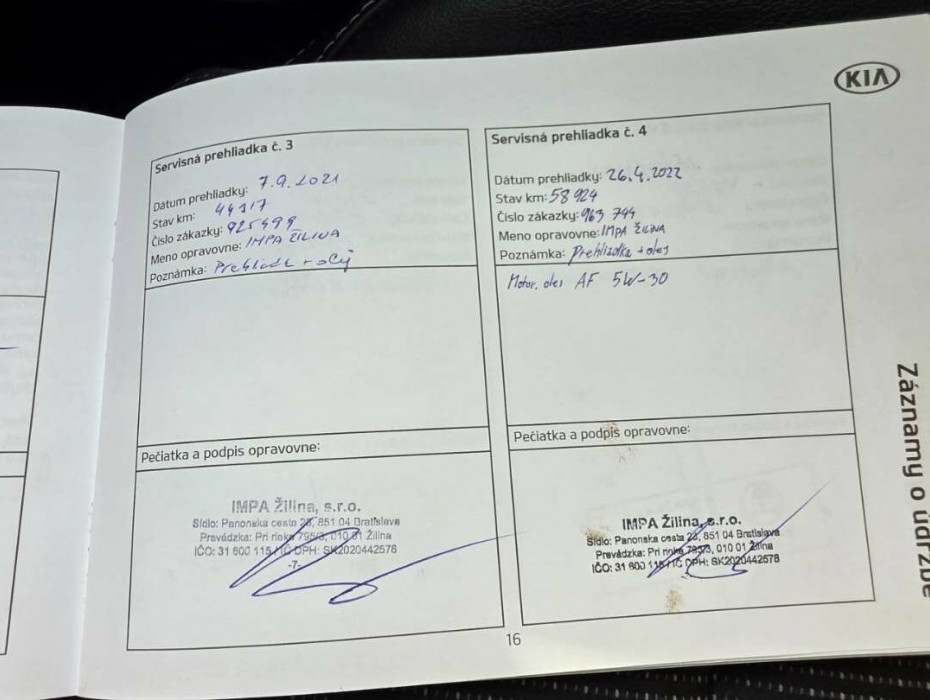 KIA
Servisná prehliadka č. 3
Dátum prehliadky: 7.9.2021
Stav km: 44117
Číslo zákazky: 925499
Meno opravovne: IMPA ŽILINA
Poznámka: Prehliadk + olej
Pečiatka a podpis opravovne:
IMPA Žilina, s.r.o.
Sídlo: Panonska cesta 23, 851 04 Bratislava
Prevádzka: Pri rieke 795/3, 010 01 Žilina
IČO: 31 600 115 / IČ DPH: SK2020442576
-7-
Servisná prehliadka č. 4
Dátum prehliadky: 26.4.2022
Stav km: 58 924
Číslo zákazky: 963 744
Meno opravovne: IMPA ŽILINA
Poznámka: Prehliadka + olej
Motor. olej AF 5W-30
Pečiatka a podpis opravovne:
IMPA Žilina, s.r.o.
Sídlo: Panonska cesta 23, 851 04 Bratislava
Prevádzka: Pri rieke 795/3, 010 01 Žilina
IČO: 31 600 115 / IČ DPH: SK2020442576
16
Záznamy o údržbe